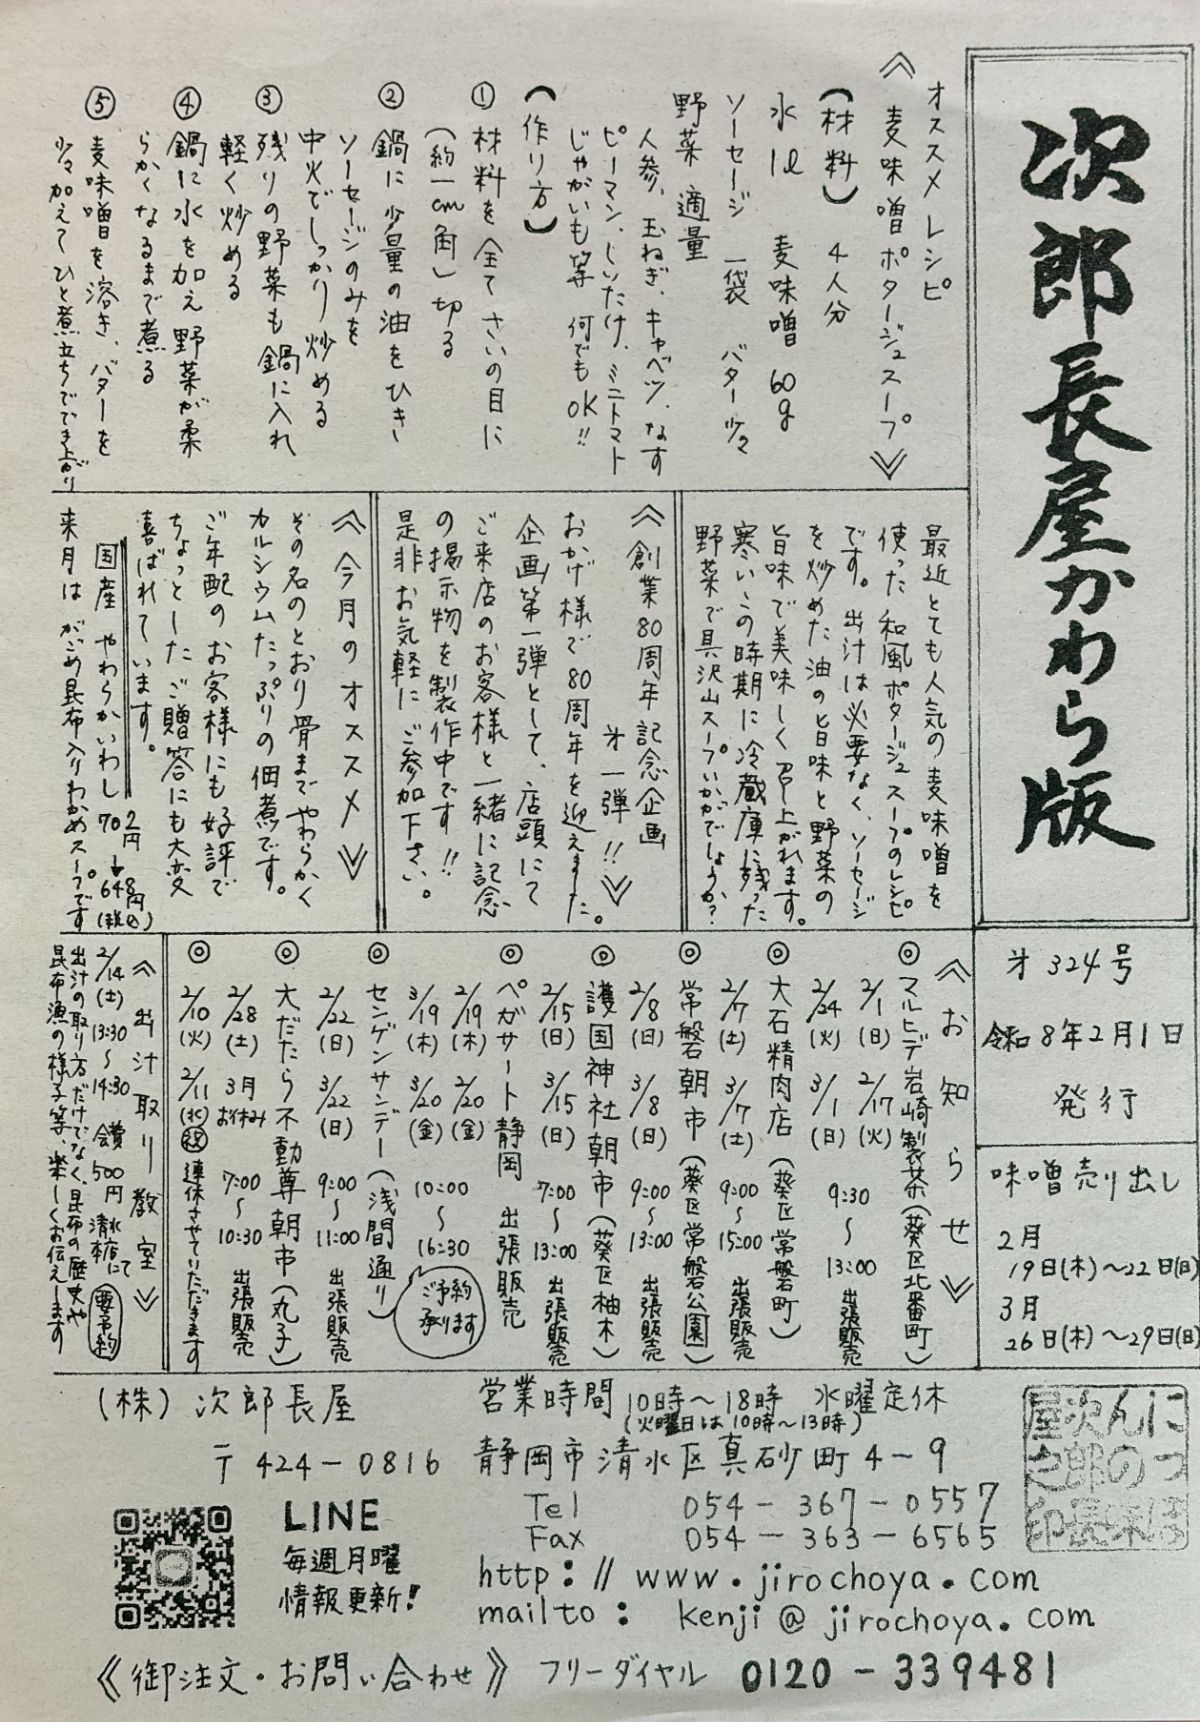 次郎長屋かわら版
才324号
令和8年2月1日
発行
味噌売り出し
2月
19日(木)〜22日(日)
3月
26日(木)〜29日(日)
オススメレシピ
《麦味噌ポタージュスープ》
(材料) 4人分
水 1ℓ 麦味噌 60g
ソーセージ 一袋 バター少々
野菜 適量
人参、玉ねぎ、キャベツ、なす
ピーマン、しいたけ、ミニトマト
じゃがいも等 何でもOK!!
(作り方)
① 材料を全てさいの目に
(約一cm角)切る
② 鍋に少量の油をひき
ソーセージのみを
中火でしっかり炒める
③ 残りの野菜も鍋に入れ
軽く炒める
④ 鍋に水を加え野菜が柔
らかくなるまで煮る
⑤ 麦味噌を溶き、バターを
少々加えてひと煮立ちででき上がり
最近とても人気の麦味噌を
使った和風ポタージュスープのレシピ
です。出汁は必要なく、ソーセージ
を炒めた油の旨味と野菜の
旨味で美味しく召し上がれます。
寒いこの時期に冷蔵庫に残った
野菜で具沢山スープいかがでしょうか?
《創業80周年記念企画
才一弾!!》
おかげ様で80周年を迎えました。
企画第一弾として、店頭にて
ご来店のお客様と一緒に記念
の掲示物を製作中です!!
是非お気軽にご参加下さい。
《今月のオススメ》
その名のとおり骨までやわらかく
カルシウムたっぷりの佃煮です。
ご年配のお客様にも好評で
ちょっとしたご贈答にも大変
喜ばれています。
国産 やわらかいわし 702円→648円(税込)
来月は がごめ昆布入りわかめスープです
《お知らせ》
◎ マルヒデ岩崎製茶(葵区北番町)
2/1(日) 2/17(火)
2/24(火) 3/1(日) 9:30〜13:00 出張販売
◎ 大石精肉店(葵区常磐町)
2/7(土) 3/7(土) 9:00〜15:00 出張販売
◎ 常磐朝市(葵区常磐公園)
2/8(日) 3/8(日) 9:00〜13:00 出張販売
◎ 護国神社朝市(葵区柚木)
2/15(日) 3/15(日) 7:00〜13:00 出張販売
ペガサート静岡 出張販売
2/19(木) 2/20(金)
3/19(木) 3/20(金) 10:00〜16:30
ご予約承ります
◎ センゲンサンデー(浅間通り)
2/22(日) 3/22(日) 9:00〜11:00 出張販売
◎ 大だたら不動尊朝市(丸子)
2/28(土) 3月お休み 7:00〜10:30 出張販売
◎ 2/10(火) 2/11(水)祝 連休させていただきます
《出汁取り教室》
2/14(土) 13:30〜14:30 会費500円 清水本店にて 要予約
出汁の取り方だけでなく、昆布の歴史や
昆布漁の様子等、楽しくお伝えします
(株)次郎長屋
営業時間 10時〜18時 水曜定休
(火曜日は10時〜13時)
〒424-0816 静岡市清水区真砂町4-9
Tel 054-367-0557
Fax 054-363-6565
http://www.jirochoya.com
mailto: kenji@jirochoya.com
LINE
毎週月曜
情報更新!
《御注文・お問い合わせ》 フリーダイヤル 0120-339481
にっぽ
んの味
次郎長
屋之印